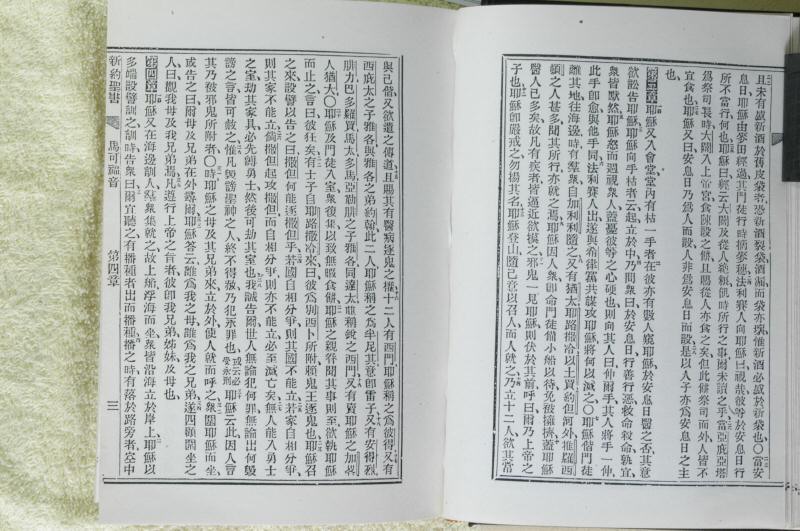 且未有盛新酒於舊皮袋者恐新酒裂袋酒漏而袋亦壞惟新酒必盛於新袋也〇當安
息日耶穌由麥田經過其門徒行時摘麥穗法利賽人向耶穌曰視哉彼等於安息日行
所不當行何也耶穌曰經云大闢及從人絕糧飢時所行之事爾未讀之乎當亞庇亞塔
爲祭司長時大闢入上帝宮食陳設之餅且賜從人亦食之矣但此餅祭司而外人皆不
宜食也耶穌又曰安息日乃爲人而設人非爲安息日而設是以人子亦爲安息日之主
也
第三章耶穌又入會堂堂內有枯一手者在彼亦有數人窺耶穌於安息日醫之否其意
欲訟告耶穌耶穌向手枯者云起立於中乃問衆曰於安息日行善行惡救命殺命孰宜
衆皆默然耶穌怒而週視衆人蓋憂彼等之心硬也則向其人曰伸爾手其人將手一伸
此手卽愈與他手同法利賽人出遂與希律黨共謀攻耶穌將何以滅之〇耶穌偕門徒
離其地往海邊時有羣衆自加利利隨之又有猶太耶路撒冷以土買約但河外推羅西
頓之人甚多聞其所行亦就之焉耶穌因人衆卽命門徒備小船以待免被擁擠蓋耶穌
醫人已多矣故凡有疾者皆逼近欲摸之邪鬼一見耶穌則伏於其前呼曰爾乃上帝之
子也耶穌卽嚴戒之勿揚其名耶穌登山隨己意以召人而人就之乃立十二人欲其常
與己偕又欲遣之傳道且賜其有醫病逐鬼之權十二人有西門耶穌稱之爲彼得又有
西庇太之子雅各與雅各之弟約翰此二人耶穌稱之爲半尼其意卽雷子又有安得烈
腓力巴多羅買馬太多馬亞勒腓之子雅各同達太並稱銳之西門又有賣耶穌之加畧
人猶大〇耶穌及門徒入室衆復集以致無暇食餅耶穌之親眷聞其事則至欲執耶穌
而止之言曰彼狂矣有士子自耶路撒冷來曰彼爲別西卜所附賴鬼王逐鬼也耶穌召
之來設譬以告之曰撒但何能逐撒但乎若國自相分爭則其國不能立若家自相分爭
則其家不能立倘撒但起攻撒但而自相分爭則亦不能立必至滅亡矣無人能入勇士
之室劫其家具必先縛勇士然後可劫其室也我誠告爾世人無論犯何罪無論出何毀
謗之言皆可赦之惟凡毀謗聖神之人終不得赦乃犯永罪也或云必受永刑耶穌云此因人言
其乃被邪鬼所附者〇時耶穌之母及其兄弟來立於外使人就而呼之衆圍耶穌而坐
或告之曰爾母及爾兄弟在外尋爾耶穌答云誰爲我之母誰爲我之兄弟遂四顧圍坐之
人曰觀我母及我兄弟焉凡遵行上帝之旨者彼卽我兄弟姊妹及母也
第四章耶穌又在海邊訓人羣衆集就之故上船浮海而坐衆皆沿海立於岸上耶穌以
多端設譬訓之訓時告衆曰爾宜聽之有播種者出而播種播之時有落於路旁者空中
新約聖書
馬可福音
第四章
三